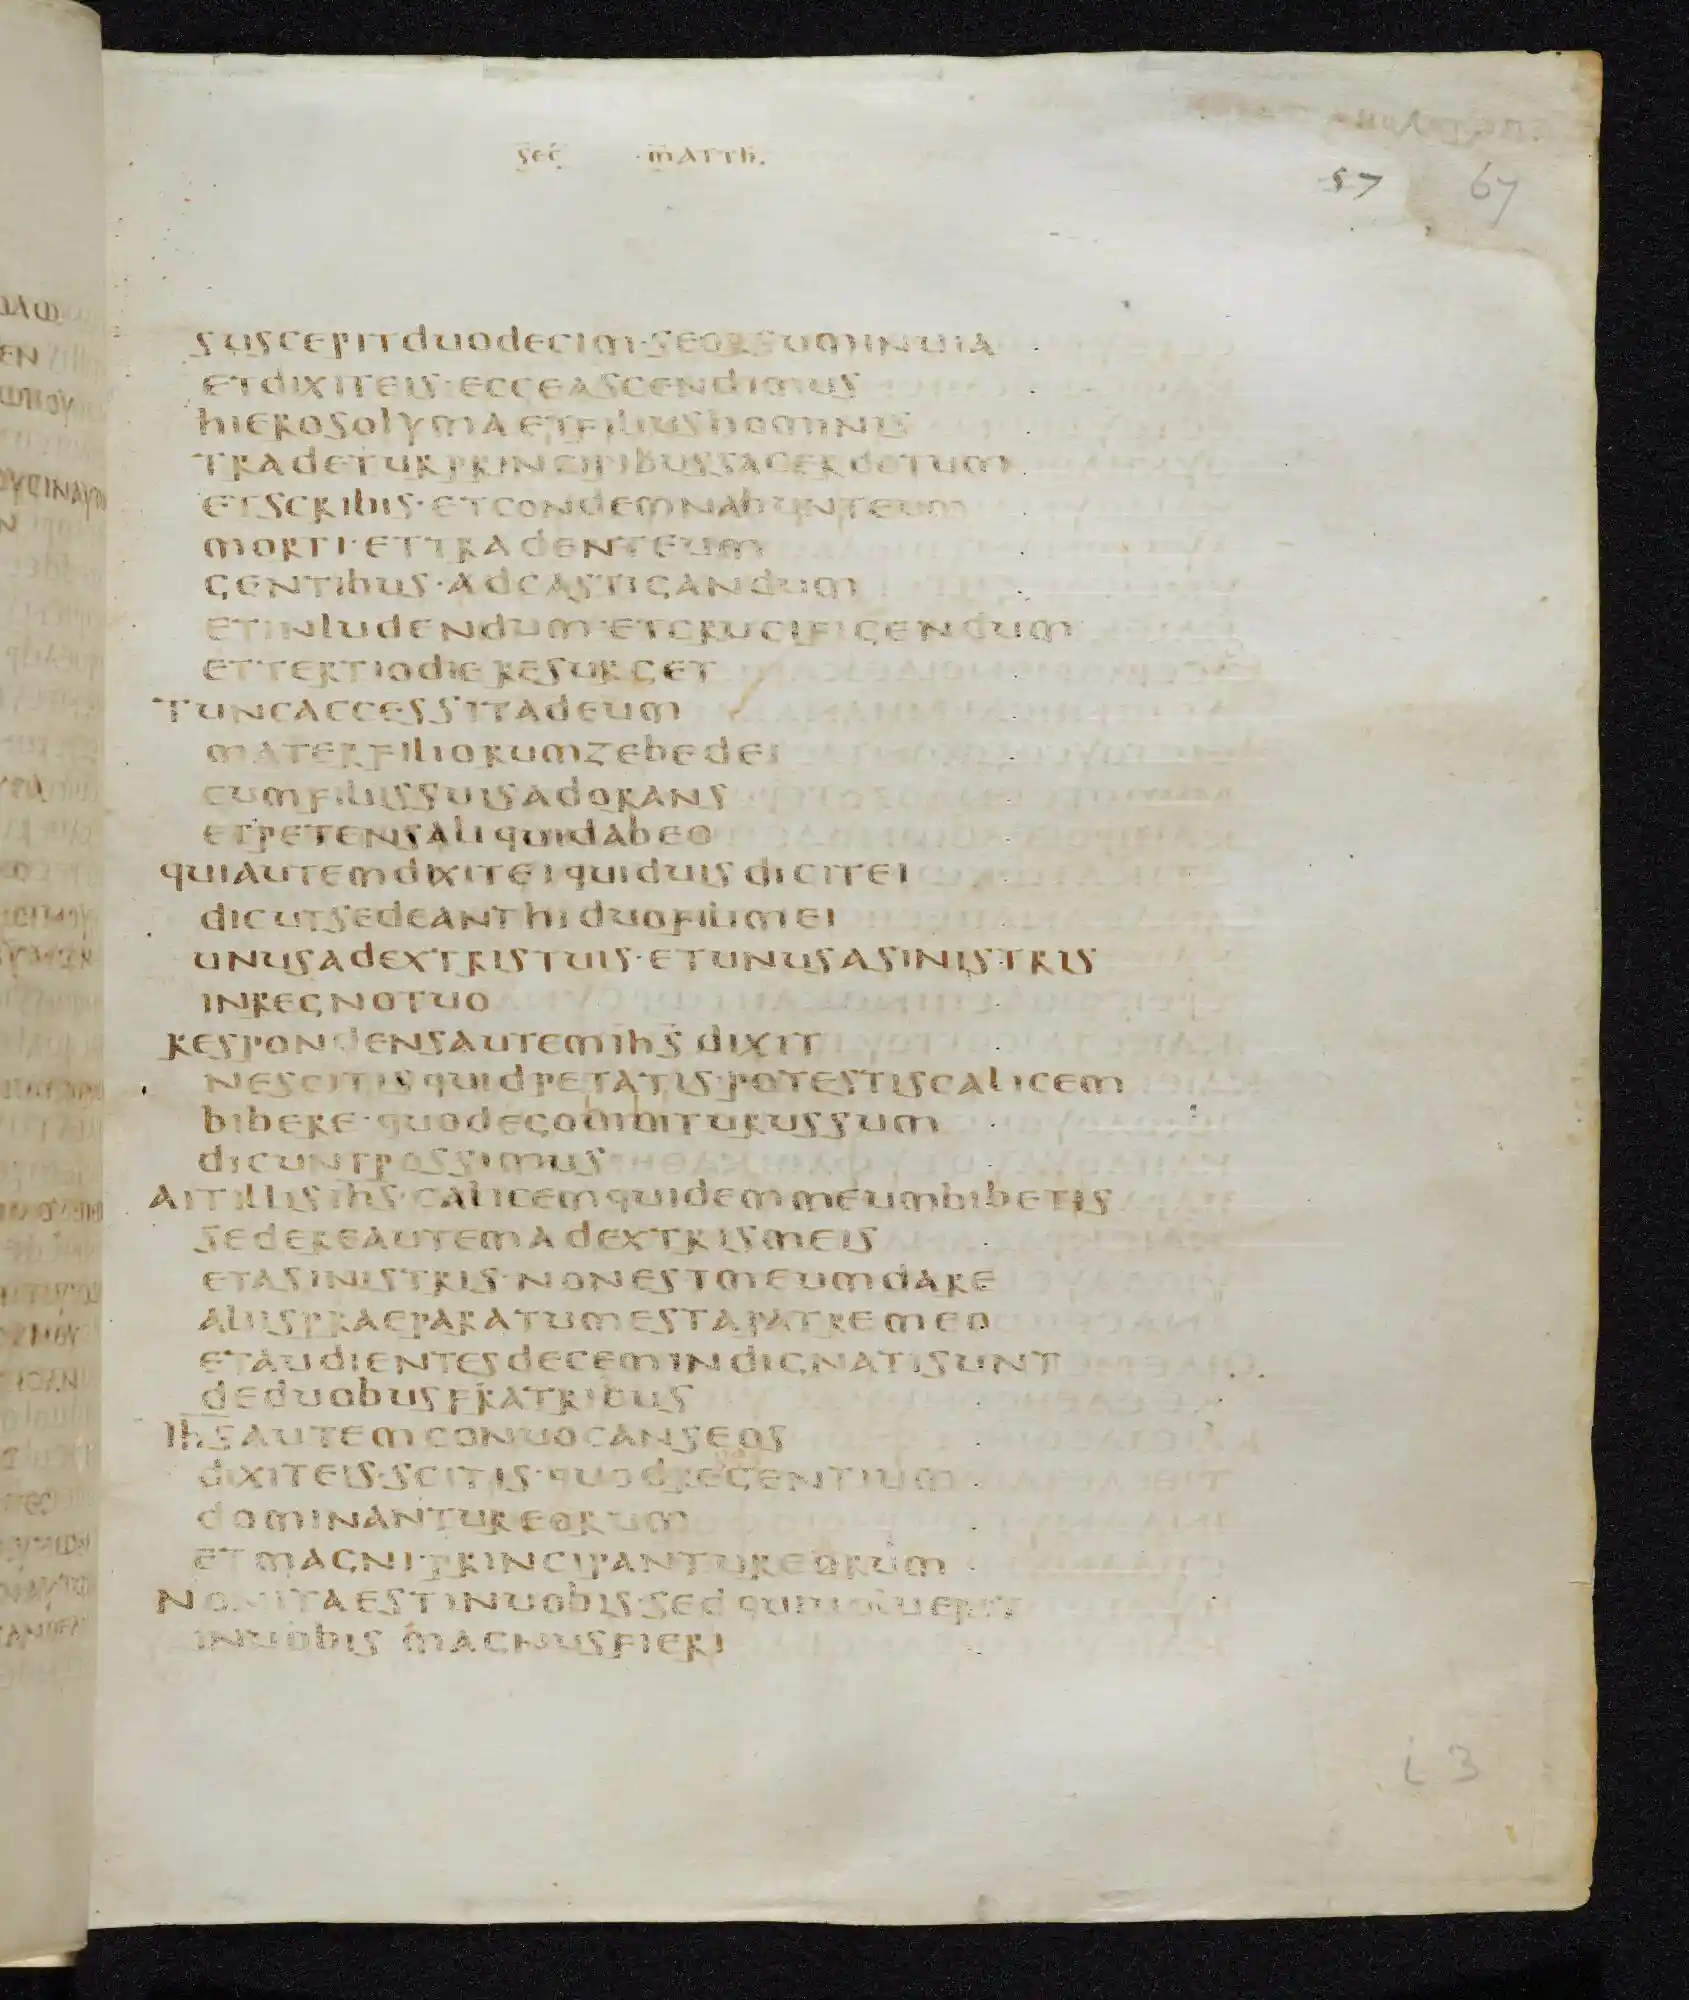 sec · matth.
57 67
suscepit duodecim · seorsum in uia
et dixit eis · ecce ascendimus
hierosolyma et filius hominis
tradetur principibus sacerdotum
et scribis · et condemnabunt eum
morti · et tradent eum
gentibus · ad castigandum
et inludendum · et crucifigendum
et tertio die resurget
tunc accessit ad eum
mater filiorum zebedei
cum filiis suis adorans
et petens aliquid ab eo
qui autem dixit ei quid uis dicit ei
dic ut sedeant hi duo fili mei
unus a dextris tuis · et unus a sinistris
in regno tuo
respondens autem ihs dixit
nescitis quid petatis · potestis calicem
bibere · quod ego
dicunt possimus
ait illis ihs · calicem quidem meum bibetis
sedere autem a dextris meis
et a sinistris · non est meum dare
aliis praeparatum est a patre meo
et audientes decem indignati sunt
de duobus fratribus
ihs autem conuocans eos
dixit eis · scitis · quod regentium
dominantur eorum
et magni · principantur eorum
non ita est in uobis · sed qui uoluerit
in uobis magnus fieri
L 3